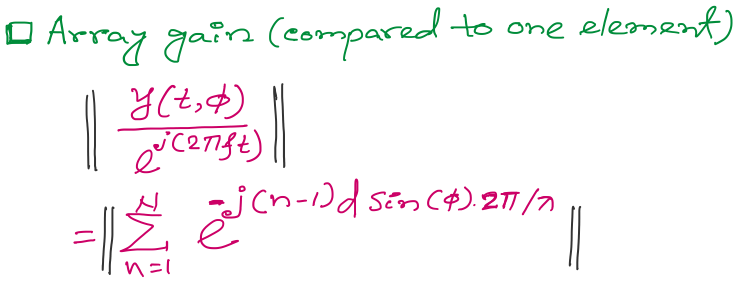 □ Array gain (compared to one element)
‖ y(t,φ) / e^{j(2πft)} ‖
= ‖ ∑_{n=1}^{N} e^{-j(n-1)d sin(φ).2π/λ} ‖